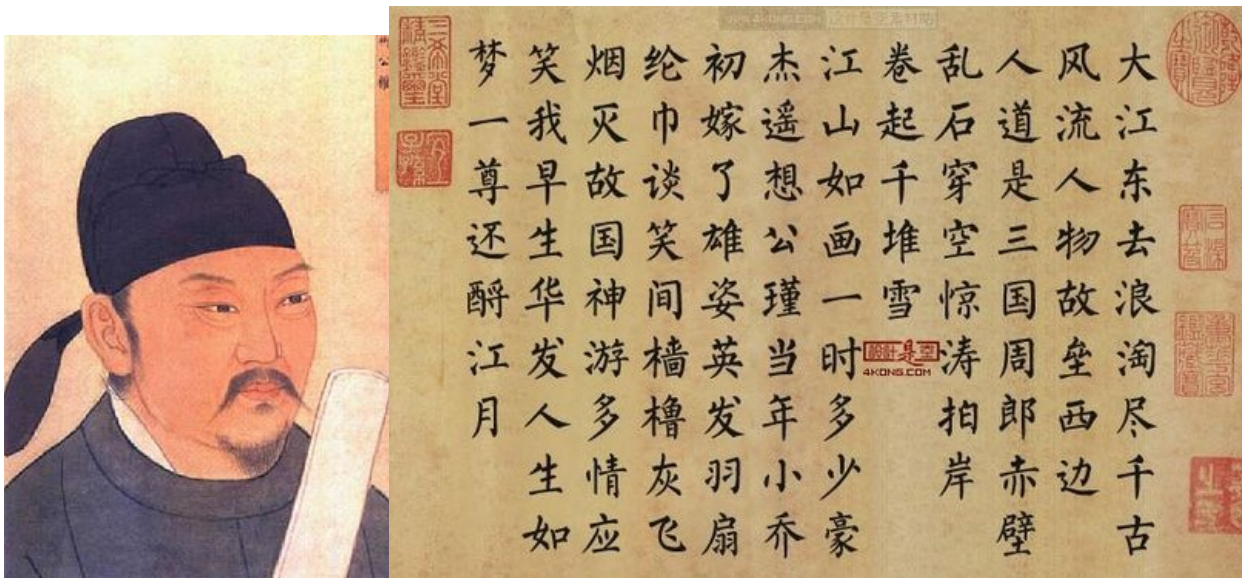 大江东去浪淘尽千古
风流人物故垒西边
人道是三国周郎赤壁
乱石穿空惊涛拍岸
卷起千堆雪
江山如画一时多少豪
杰遥想公瑾当年小乔
初嫁了雄姿英发羽扇
纶巾谈笑间樯橹灰飞
烟灭故国神游多情应
笑我早生华发人生如
梦一尊还酹江月
三希堂精鑑璽
宜子孫
4KONG.COM